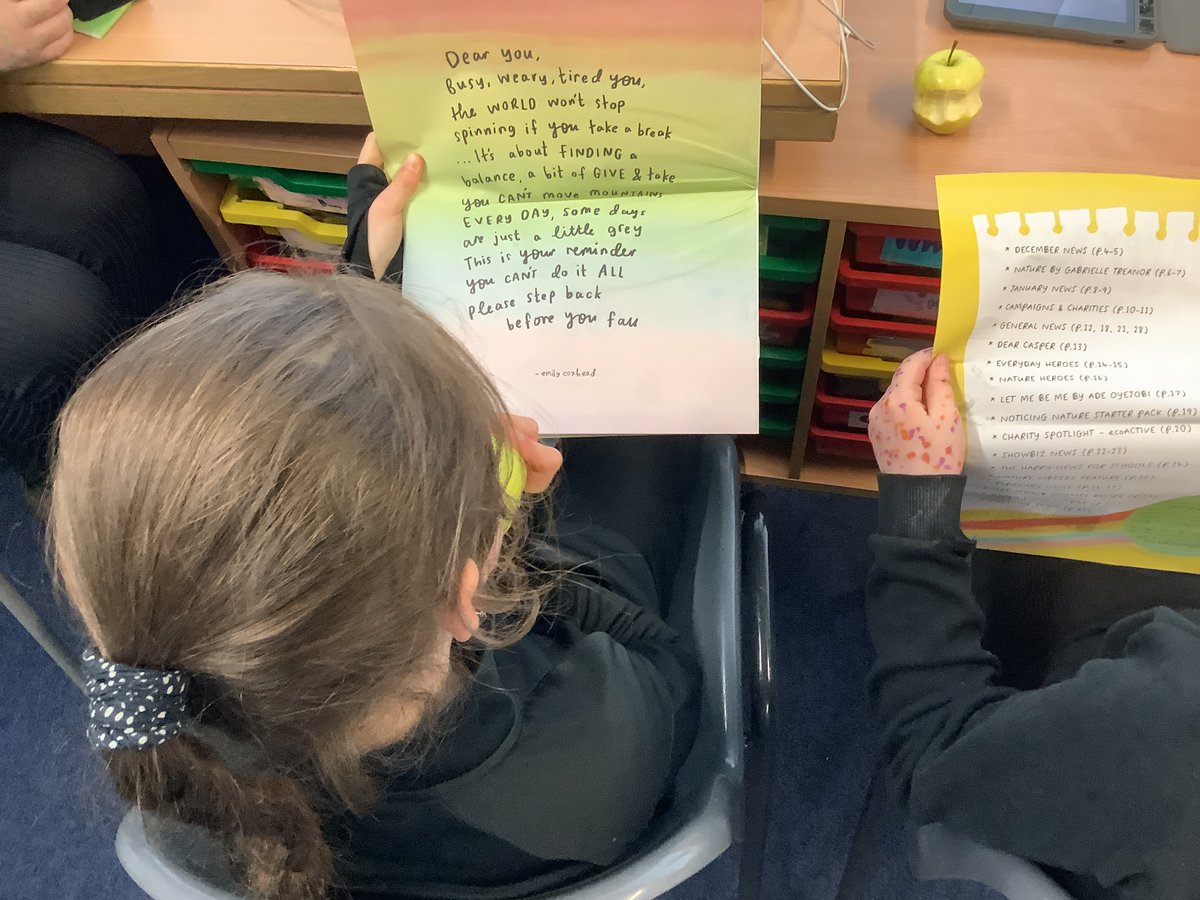 Dear you,
Busy, weary, tired you,
the WORLD won't stop
spinning if you take a break
...It's about FINDING a
balance, a bit of GIVE & take
you CAN'T move MOUNTAINS
EVERY DAY, some days
are just a little grey
This is your reminder
you CAN'T do it ALL
please step back
before you fall
- emily coxhead
* DECEMBER NEWS (P.4-5)
* NATURE BY GABRIELLE TREANOR (P.6-7)
* JANUARY NEWS (P.8-9)
* CAMPAIGNS & CHARITIES (P.10-11)
* GENERAL NEWS (P.12, 18, 21, 28)
* DEAR CASPER (P.13)
* EVERYDAY HEROES (P.14-15)
* NATURE HEROES (P.16)
* LET ME BE ME BY ADE OYEJOBI (P.17)
* NOTICING NATURE STARTER PACK (P.19)
* CHARITY SPOTLIGHT - ecoACTIVE (P.20)
* SHOWBIZ NEWS (P.22-23)
* THE HAPPY NEWS FOR SCHOOLS (P.24)